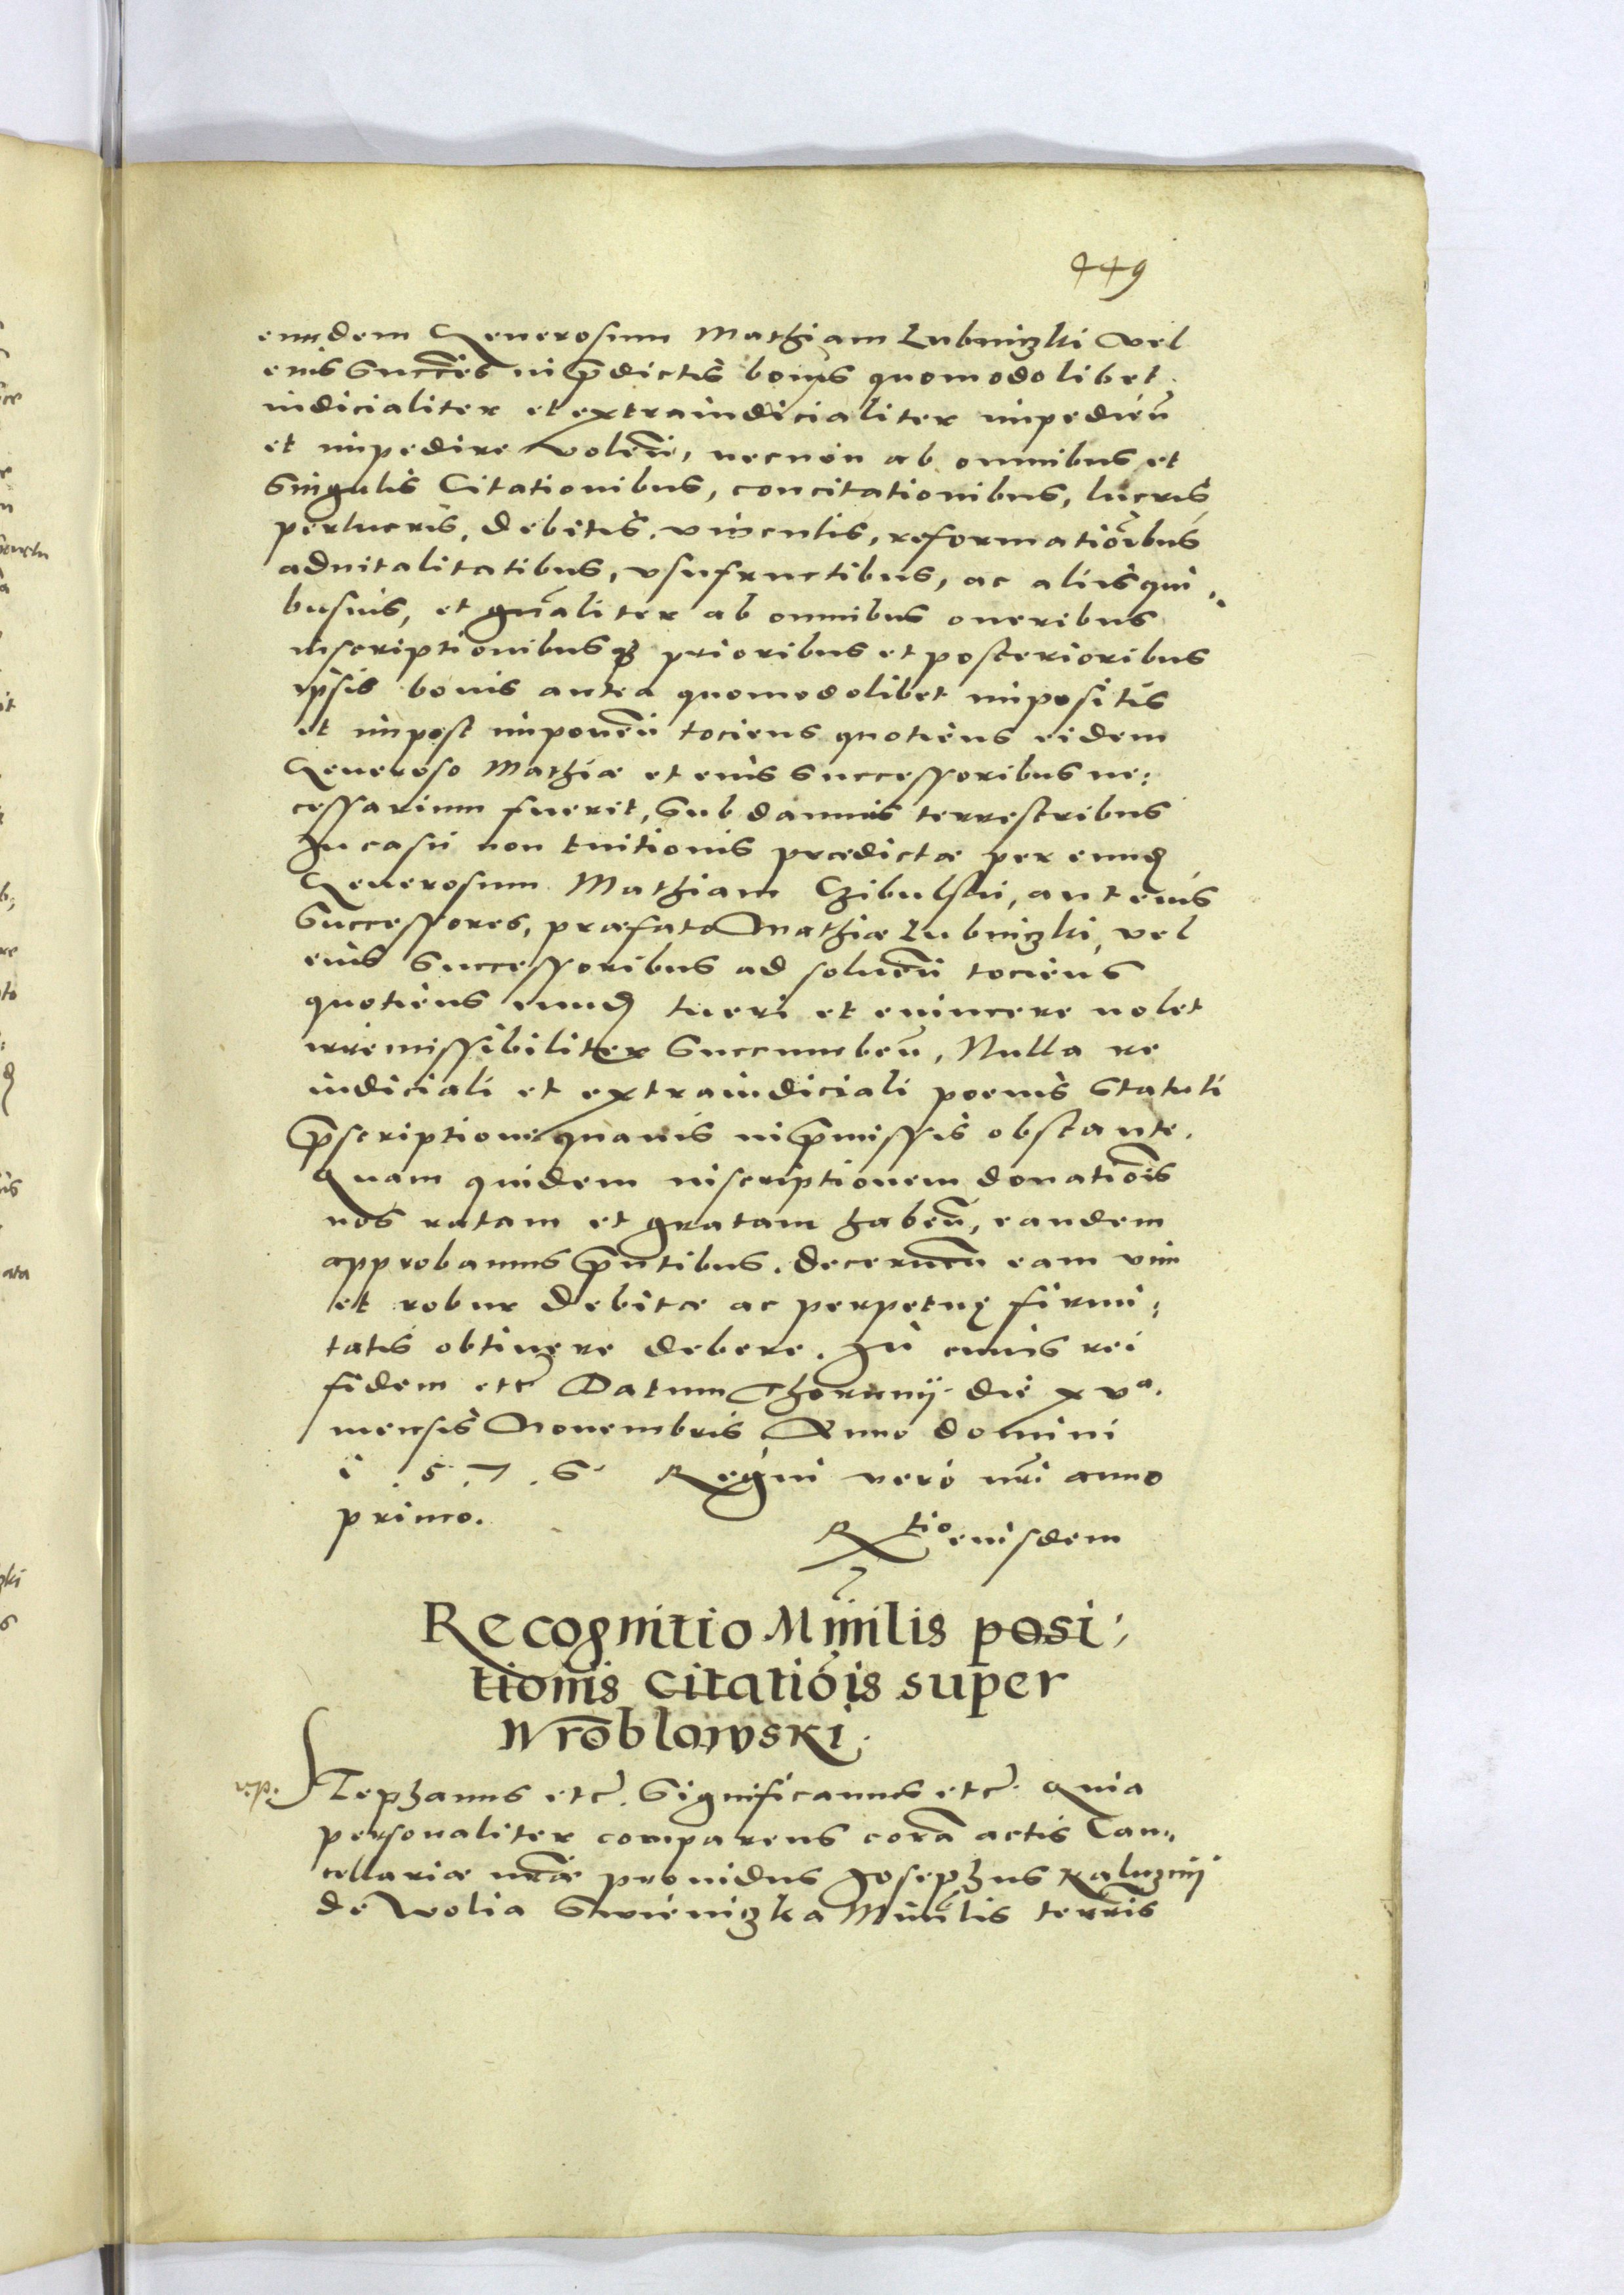 449
eundem Generosum Mathiam Lubniczki vel
eius Succes̃ in p̃dictis bonis quomodolibet
iudicialiter et extraiudicialiter impedieñ
et impedire voleñ, necnon ab omnibus et
Singulis Citationibus, concitationibus, lucris,
perlucris, debitis, vinculis, reformatiõibus
aduitalitatibus, vsufructibus, ac alijs qui„
busuis, et gñaliter ab omnibus oneribus
inscriptionibusq; prioribus et posterioribus
ipsis bonis antea quomodolibet impositis
et impost imponeñ tociens quotiens eidem
Generoso Mathiæ et eius Successoribus ne:
cessarium fuerit, Sub damnis terrestribus
In casu non tuitionis prædictæ per eund
Generosum Mathiam Czibulski, aut eius
Successores, præfato Mathiæ Lubniczki, vel
eius Successoribus ad solueñ tociens
quotiens eund tueri et euincere nolet
irremissibiliter Succumbeñ, Nulla re
iudiciali et extraiudiciali poenis Statuti
p̃scriptione quauis in p̃missis obstante.
Quam quidem inscriptionem donatiõis
nos ratam et gratam habeñ, eandem
approbamus p̃ntibus. decerneñ eam vim
et robur debitæ ac perpetuę firmi:
tatis obtinere debere. In cuius rei
fidem etc̃ Datum Thorunij die xvª.
mensis Nouembris Anno domini
1.5.7.6. Regni vero nr̃i anno
primo.
Rtio eiusdem
Recognitio Minĩlis posi:
tionis citatiõis super
Wroblowski.
v.p. Stephanus etc̃. Significamus etc̃. Quia
personaliter comparens corã actis Can„
cellariæ nr̃æ prouidus Josephus Kaluznij
de Wolia Swieniczka Minĩlis terrr̃is